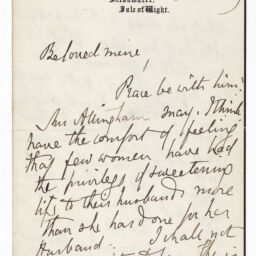 Freshwater,
Isle of Wight.
Beloved mine,
Peace be with him!
Mrs Allingham may, I think
have the comfort of feeling
that few women have had
the privilege of sweetening
life to their husbands more
than she has done for her
husband. I shall not